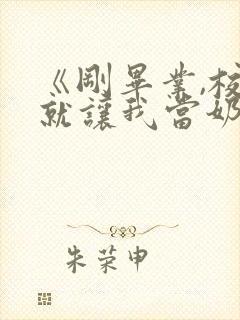 《剛畢業,校
就讓我當奶
朱荣申